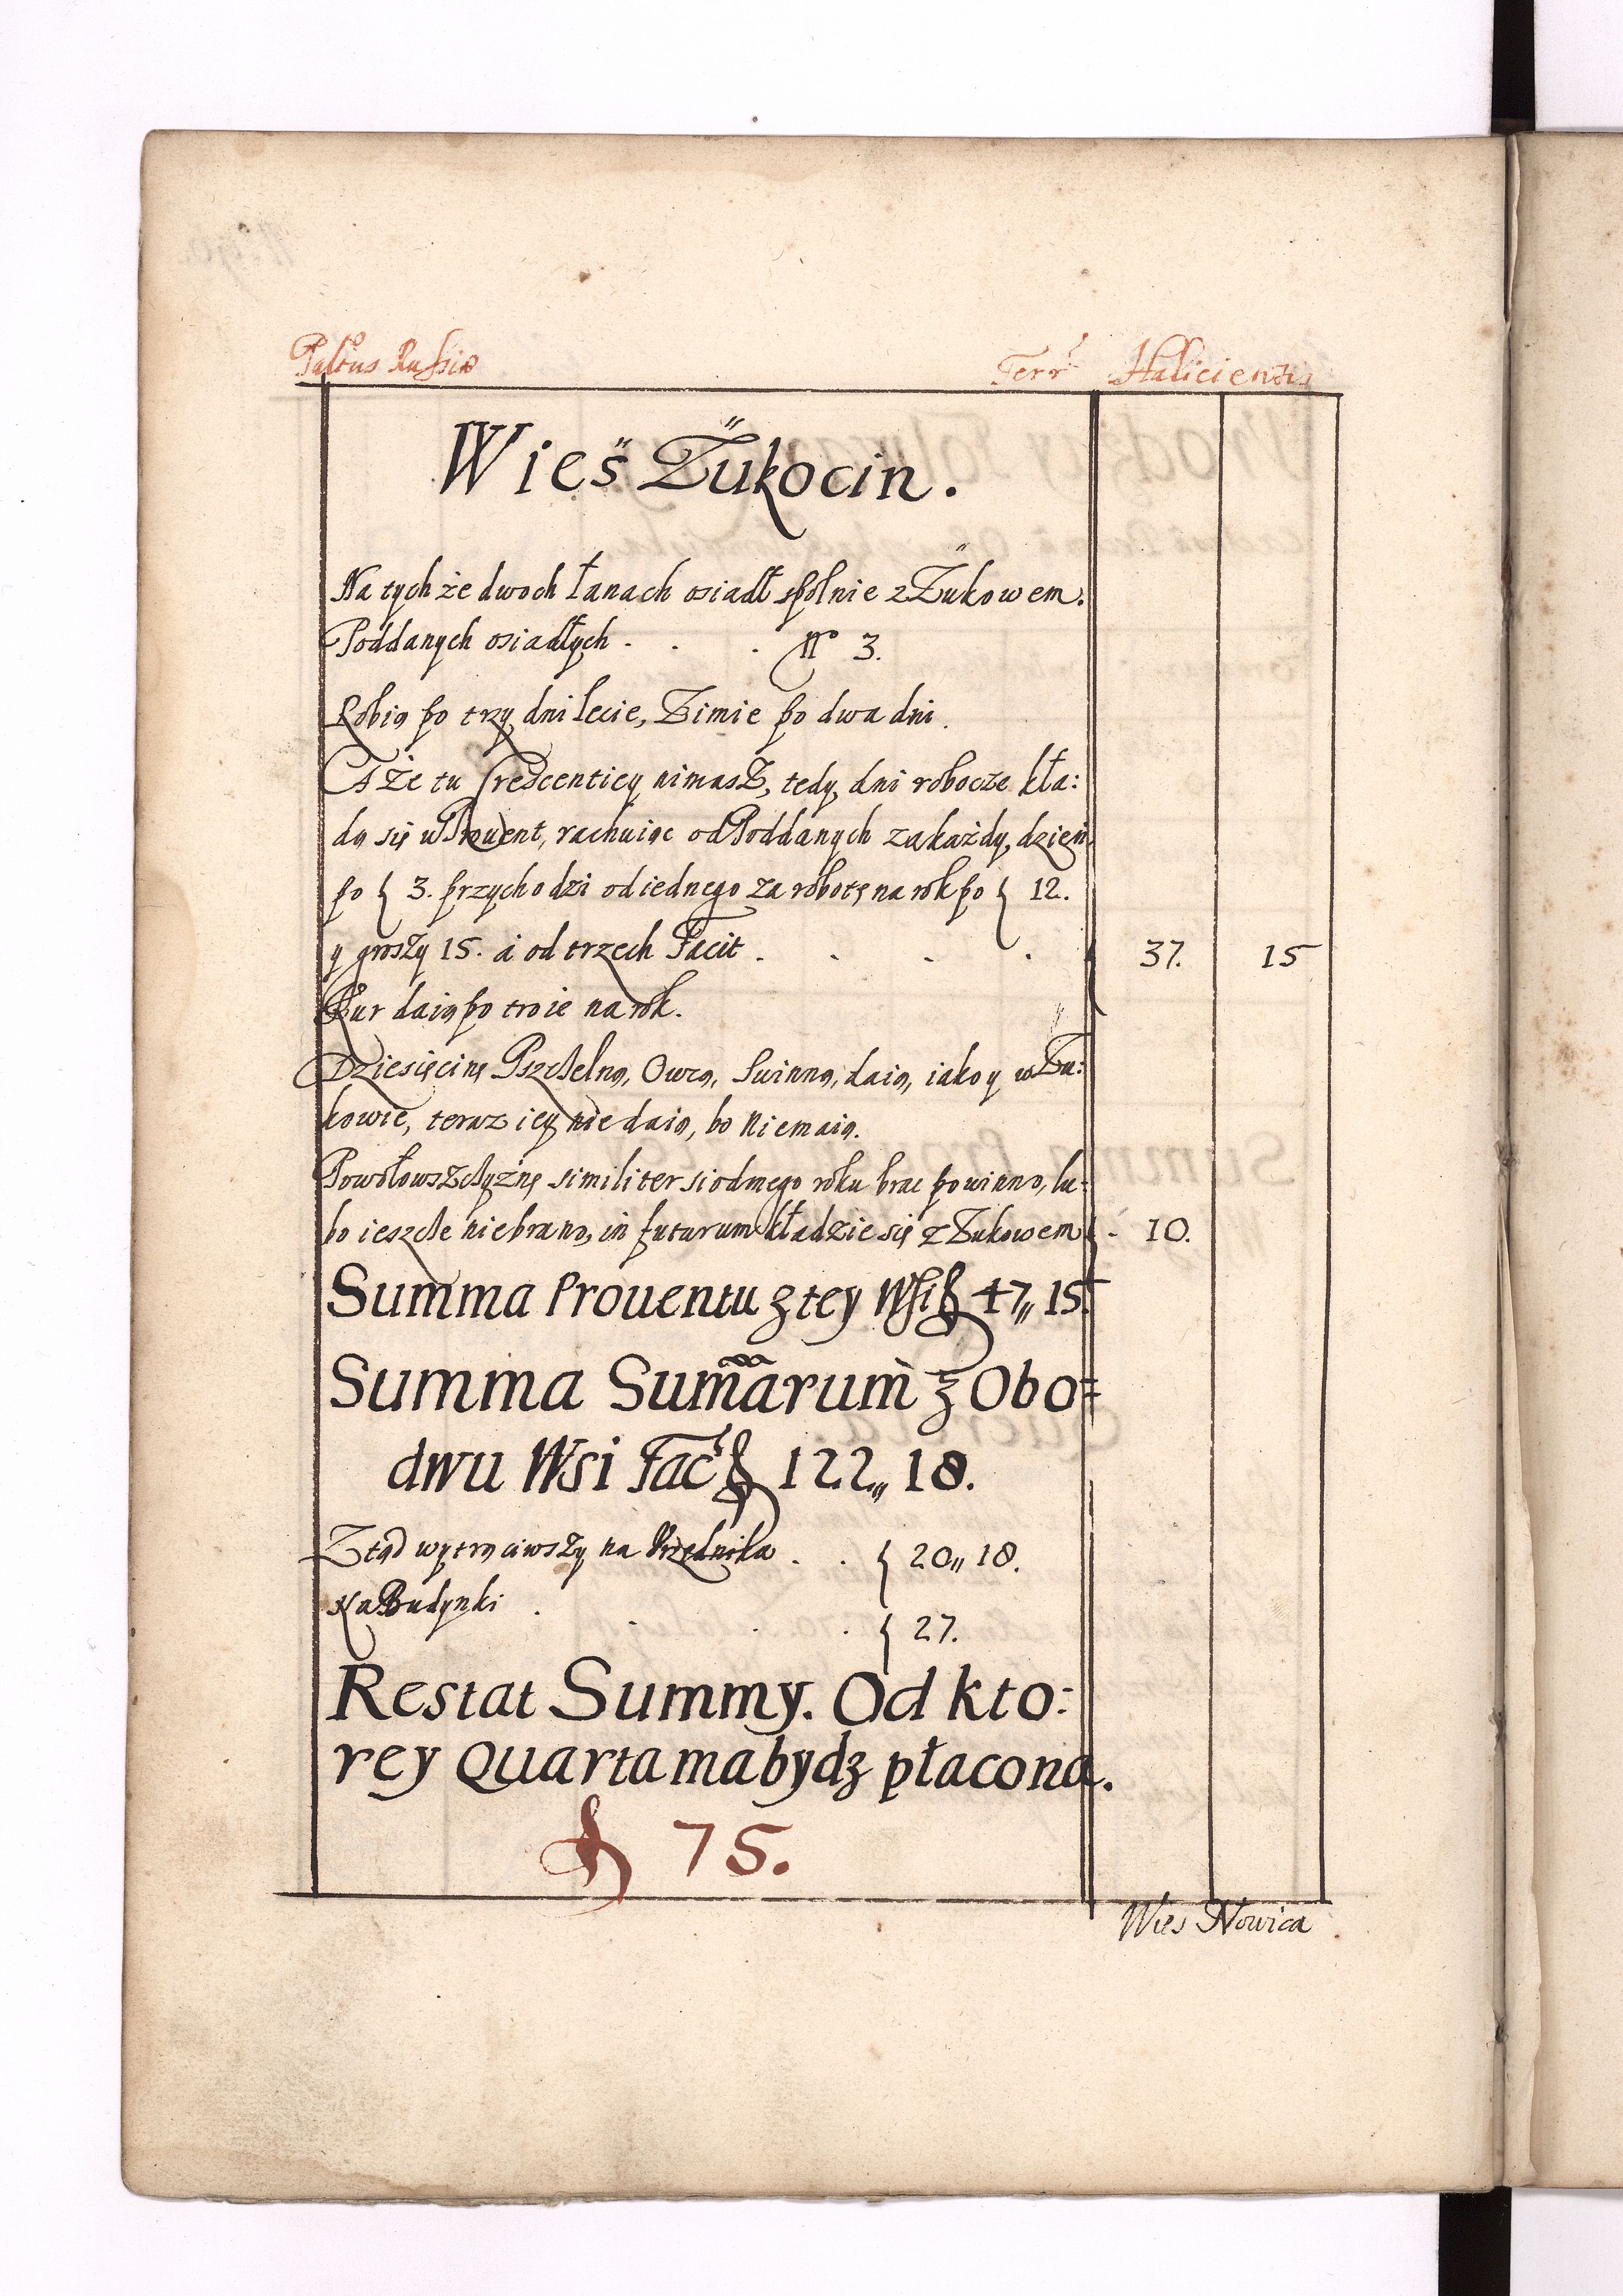 Paltus Russiæ Terr: Haliciensis
Wieś Żukocin.
Na tych że dwoch łanach osiadł spolnie z Żukowem.
Poddanych osiadłych . . . Nº 3.
Robią po trzy dni lecie, Zimie po dwa dni.
A Że tu Crescentiey nimasz, tedy, dni robocze kła:
dą się w Prouent, rachuiąc od Poddanych za każdy, dzień
po ƒ 3. przychodzi od iednego za robotę na rok po ƒ 12.
y groszy 15. a od trzech Facit . . . . ƒ 37. 15
Kur daią po troie na rok.
Dziesięcinę Pszczelną, Owczą, Swinną, daią, iako y w Żu:
kowie, teraz iey nie daią, bo Niemaią.
Powołowszczyznę similiter siodmego roku brac powinno, lu:
bo ieszcze nie brano, in futurum kładzie się z Żukowem ƒ . 10.
Summa Prouentu z tey Wsi ƒ 47,, 15.
Summa Sum̃arum z Obo=
dwu Wsi Fac: ƒ 122,, 18.
Ztąd wytrąciwszy na Urzędnika . . ƒ 20,, 18.
Na Budynki . . . . ƒ 27.
Restat Summy. Od kto:
rey Quarta ma bydz płacona.
ƒ 75.
Wies Nowica